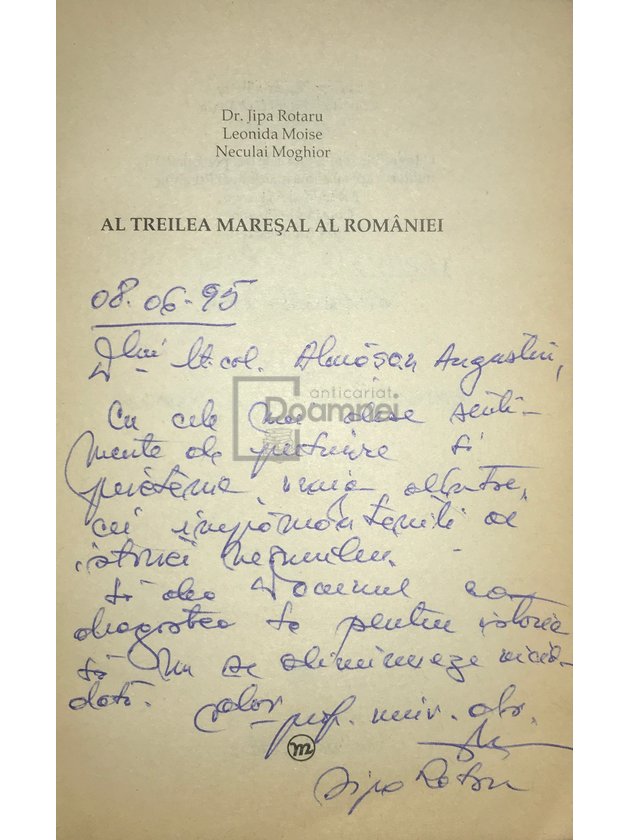 Dr. Jipa Rotaru
Leonida Moise
Neculai Moghior
AL TREILEA MAREŞAL AL ROMÂNIEI
08.06.95
D-lui lt. col. Almăşan Augustin,
anticariat
Doamnei
Cu cele mai alese senti-
mente de prețuire și
prietenie,
cei împătimiți de
istoria neamului.
Și dea Domnul ca
dragostea ta pentru istorie
să nu se diminueze nicio-
dată.
prof. univ. dr.
m
Jipa Rotaru